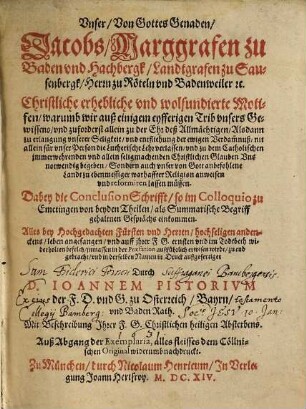 Vnser / Von Gottes Genaden /
Jacobs / Marggrafen zu
Baden vnd Hachbergk / Landtgrafen zu Sau-
senbergk / Herrn zu Röteln vnd Badenweiler ꝛc.
Christliche erhebliche vnd wolfundierte Moti-
fen / warumb wir auß einigem eyfferigen Trib vnsers Ge-
wissens / vnd zuforderst allein zu der Ehr deß Allmächtigen / Alsdann
zu erlangung vnserer Seligkeit / vnd entfliehung der ewigen Verdamnuß / nit
allein für vnser Person die Lutherische Lehr verlassen / vnd zu dem Catholischen
immerwehrenden vnd allein seligmachenden Christlichen Glauben Vns
notwendig begeben: Sondern auch vnser von Gott anbefohlene
Landt zu ebenmessiger warhaffter Religion anweisen
vnd reformiren lassen müssen.
Dabey die Conclusion Schrifft / so im Colloquio zu
Emetingen von beyden Theilen / als Summarische Begriff
gehaltenen Gesprächs einkommen.
Alles bey Hochgedachten Fürsten vnd Herrn / Hochseligen anden-
ckens / leben angefangen / vnd auß jhrer F. G. ernsten vnd im Todtbeth wi-
derholtem befelch
bracht / vnd in derselben Namen in Druck außgefertiget
Durch
D. IOANNEM PISTORIVM
der F. D. vnd G. zu Osterreich / Bayrn /
vnd Baden Rath.
Mit Beschreibung Jhrer F. G. Christlichen heiligen Absterbens.
Auß Abgang der Exemplaria, alles fleisses dem Cöllni-
schen Original widerumb nachdruckt.
Zu München / durch Nicolaum Henricum / In Verle-
gung Joann Hertsroy. M. DC. XIV.